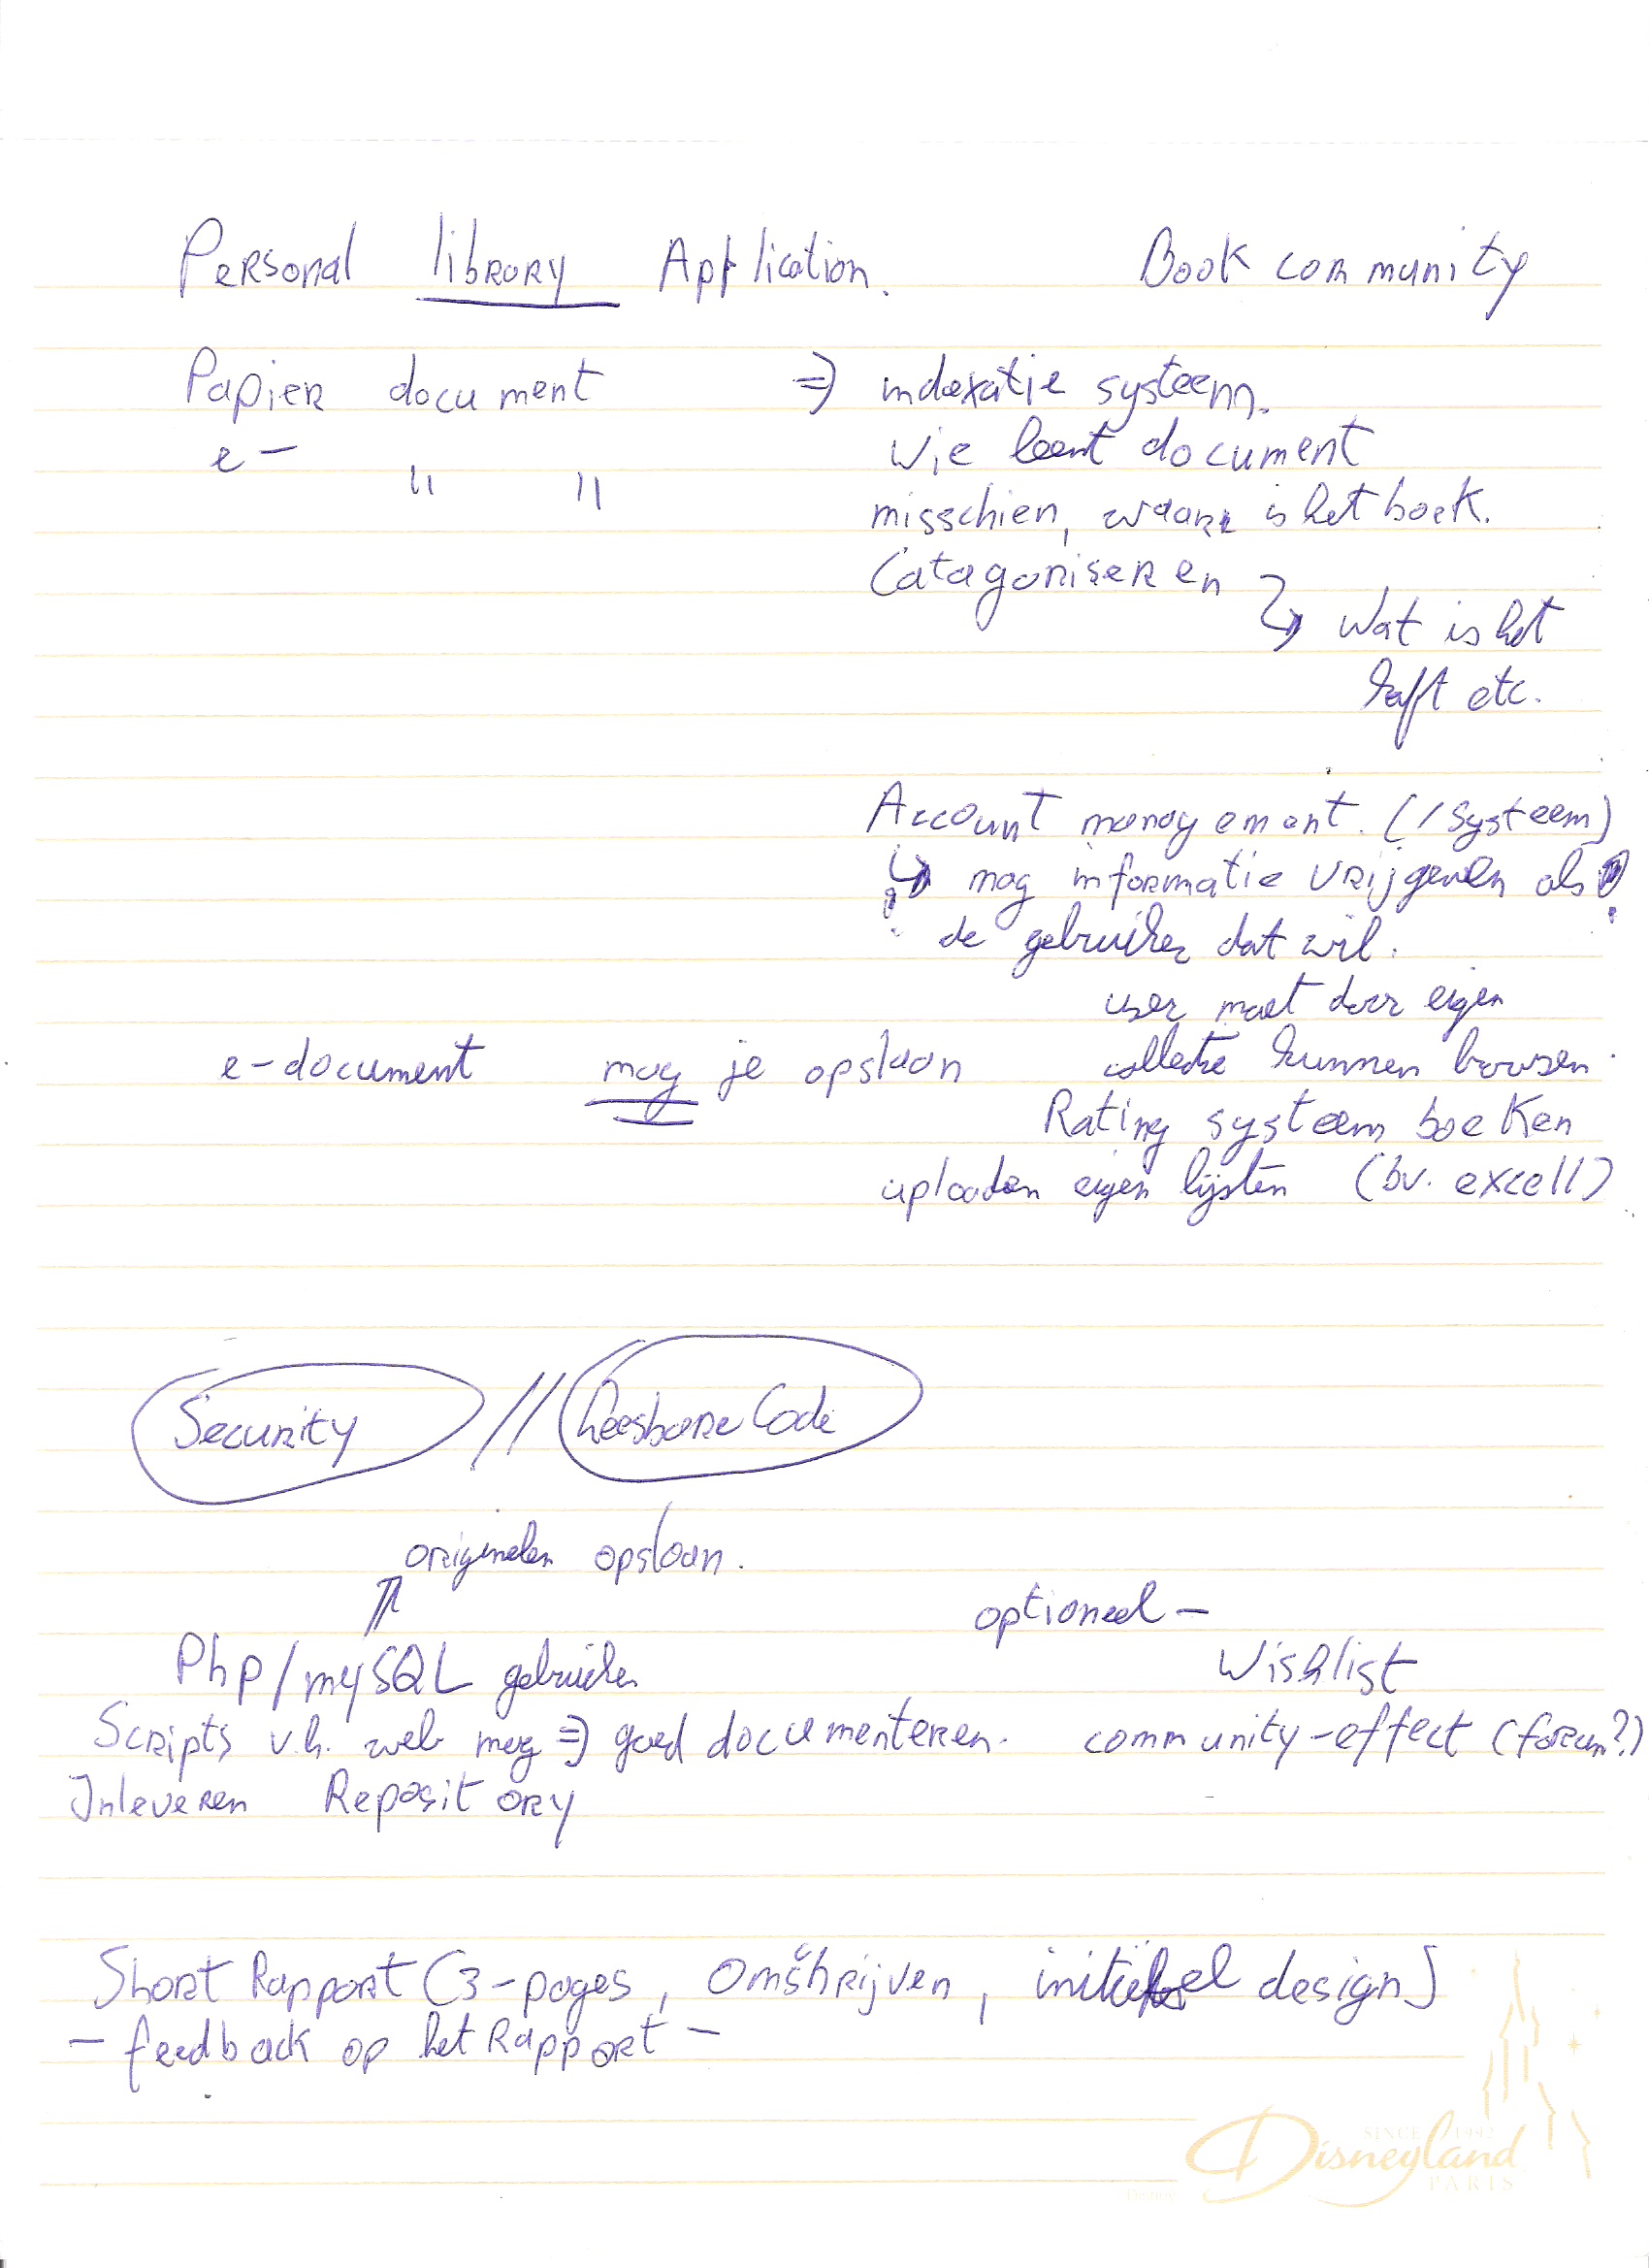 Personal library Application. Book community
Papier document => indexatie systeem.
e- " "
Wie leent document
misschien, waar is het boek.
Catagoriseren
↳ Wat is het
kaft etc.
Account management. (/systeem)
↳ mag informatie vrijgeven als
de gebruiker dat wil.
user moet door eigen
e-document mag je opslaan collectie kunnen browsen.
Rating systeem boeken
uploaden eigen lijsten (bv. excell)
Security // Leesbare Code
originelen opslaan.
optioneel -
Php/mySQL gebruiken Wishlist
Scripts v.h. web mag => goed documenteren. community-effect (forum?)
Inleveren Repository
Short Rapport (3-pages, Omschrijven, initieel design)
- feedback op het Rapport -
SINCE 1992
Disneyland
PARIS
Disney